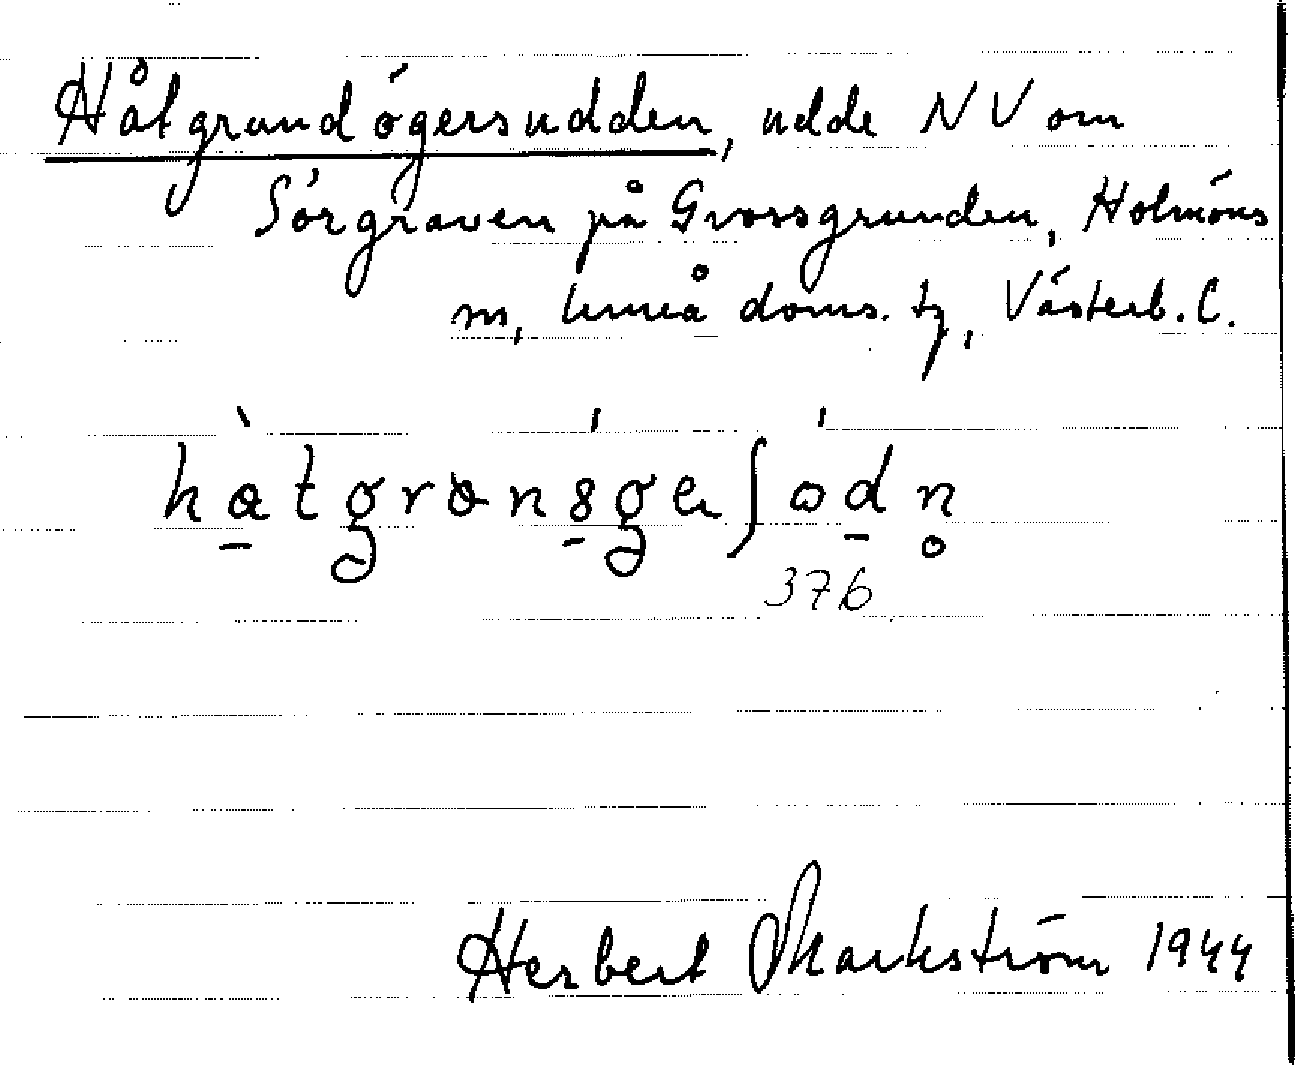 Håtgrundögersudden, udde NV om
Sörgraven på Grossgrunden, Holmöns
m, Umeå doms. tg, Västerb. l.
376
Herbert Markström 1944